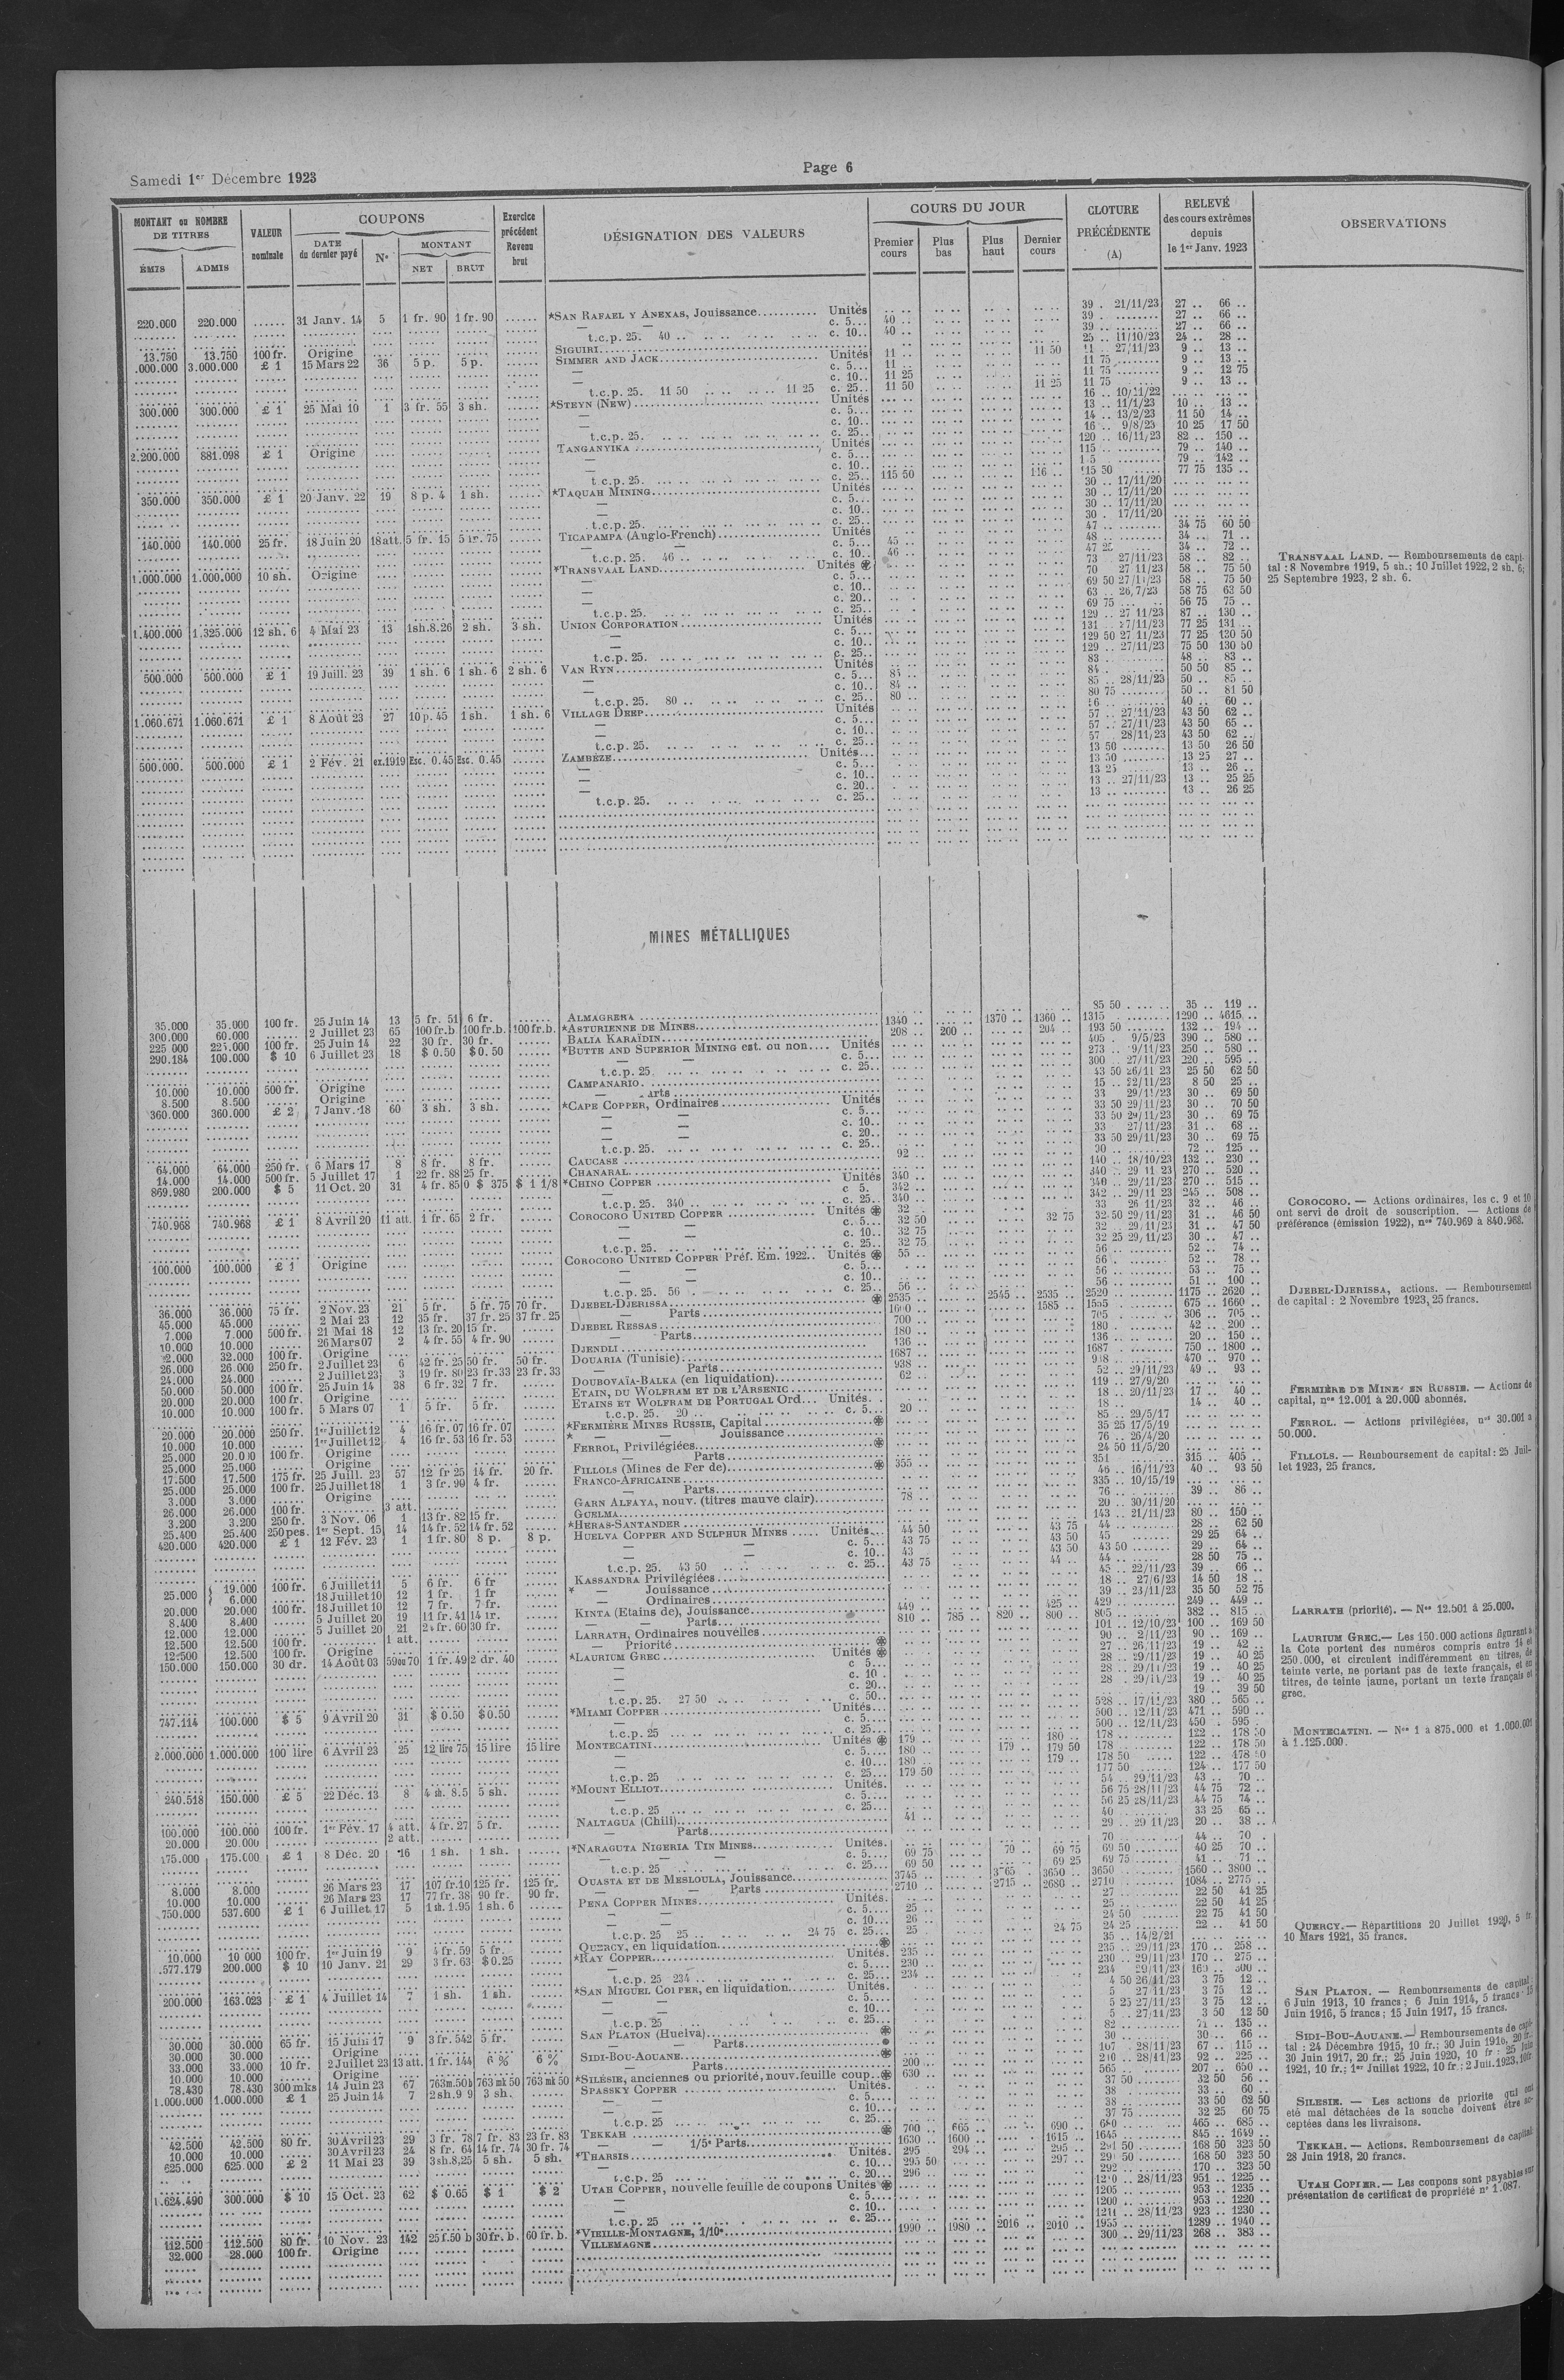 Samedi 1er Décembre 1923
Page 6
MONTANT ou NOMBRE DE TITRES
ÉMIS ADMIS
VALEUR nominale
COUPONS
DATE du dernier payé
No
MONTANT
NET BRUT
Exercice précédent Revenu brut
DÉSIGNATION DES VALEURS
COURS DU JOUR
Premier cours
Plus bas
Plus haut
Dernier cours
CLOTURE PRÉCÉDENTE (A)
RELEVÉ des cours extrêmes depuis le 1er Janv. 1923
OBSERVATIONS
220.000 220.000 31 Janv. 14 5 1 fr. 90 1 fr. 90 *SAN RAFAEL Y ANEXAS, Jouissance Unités 39 . 21/11/23 27 .. 66 ..
— — c. 5 40 .. 39 . 27 .. 66 ..
t.c.p. 25. 40 .. c. 10 40 .. 39 .. 27 .. 66 ..
13.750 13.750 100 fr. Origine SIGUIRI 25 .. 11/10/23 24 .. 28 ..
3.000.000 £ 1 15 Mars 22 36 5 p. 5 p. SIMMER AND JACK Unités 11 .. 11 50 27/11/23 9 .. 13 ..
— c. 5 11 .. 11 75 9 .. 13 ..
— c. 10 11 25 11 75 9 .. 12 75
t.c.p. 25. 11 50 11 25 c. 25 11 50 11 25 11 75 9 .. 13 ..
300.000 300.000 £ 1 25 Mai 10 1 3 fr. 55 3 sh. *STEYN (NEW) Unités 16 .. 10/11/22
— c. 5 13 .. 11/1/23 10 .. 13 ..
— c. 10 14 .. 13/2/23 11 50 14 ..
t.c.p. 25. c. 25 16 .. 9/8/23 10 25 17 50
2.200.000 881.098 £ 1 Origine TANGANYIKA Unités 120 .. 16/11/23 82 .. 150 ..
— c. 5 115 .. 79 .. 140 ..
— c. 10 79 .. 142 ..
t.c.p. 25. c. 25 115 50 116 .. 115 50 77 75 135 ..
350.000 350.000 £ 1 20 Janv. 22 19 8 p. 4 1 sh. *TAQUAH MINING Unités 30 .. 17/11/20
— c. 5 30 .. 17/11/20
— c. 10 30 .. 17/11/20
t.c.p. 25. c. 25 30 . 17/11/20
140.000 140.000 25 fr. 18 Juin 20 18 att. 5 fr. 15 5 fr. 75 TICAPAMPA (Anglo-French) Unités 47 .. 34 75 60 50
— — c. 5 45 .. 48 .. 34 .. 71 ..
t.c.p. 25. 46 .. c. 10 46 .. 47 25 34 .. 72 ..
1.000.000 1.000.000 10 sh. Origine *TRANSVAAL LAND Unités 73 .. 27/11/23 58 .. 82 ..
— c. 5 70 27 11/23 58 .. 75 50
— c. 10 69 50 27/11/23 58 .. 75 50
— c. 20 63 .. 26/7/23 58 75 63 50
t.c.p. 25. c. 25 69 75 56 75 75 ..
1.400.000 1.325.000 12 sh. 6 4 Mai 23 13 1sh.8.26 2 sh. 3 sh. UNION CORPORATION Unités 129 .. 27 11/23 87 .. 130 ..
— c. 5 131 .. 27/11/23 77 25 131 ..
— c. 10 129 50 27 11/23 77 25 130 50
t.c.p. 25. c. 25 129 .. 27/11/23 75 50 130 50
500.000 500.000 £ 1 19 Juill. 23 39 1 sh. 6 1 sh. 6 2 sh. 6 VAN RYN Unités 83 .. 48 .. 83 ..
— c. 5 84 .. 50 50 85 ..
— c. 10 84 .. 85 .. 28/11/23 50 .. 85 ..
t.c.p. 25. 80 .. c. 25 80 .. 80 75 50 .. 81 50
1.060.671 1.060.671 £ 1 8 Août 23 27 10 p. 45 1 sh. 1 sh. 6 VILLAGE DEEP Unités 40 .. 60 ..
— c. 5 57 .. 27/11/23 43 50 62 ..
— c. 10 57 .. 27/11/23 43 50 65 ..
t.c.p. 25. c. 25 57 28/11/23 43 50 62 ..
500.000 500.000 £ 1 2 Fév. 21 ex.1919 Esc. 0.45 Esc. 0.45 ZAMBÈZE Unités 13 50 13 50 26 50
— c. 5 13 50 13 25 27 ..
— c. 10 13 25 13 .. 26 ..
— c. 20 13 .. 27/11/23 13 .. 25 25
t.c.p. 25. c. 25 13 .. 13 .. 26 25
TRANSVAAL LAND. — Remboursements de capi-
tal : 8 Novembre 1919, 5 sh.; 10 Juillet 1922, 2 sh. 6;
25 Septembre 1923, 2 sh. 6.
MINES MÉTALLIQUES
35.000 35.000 100 fr. 25 Juin 14 13 5 fr. 51 6 fr. ALMAGRERA 85 50 35 .. 119 ..
300.000 60.000 2 Juillet 23 65 100 fr.b. 100 fr.b. 100 fr.b. *ASTURIENNE DE MINES 1340 .. 1370 .. 1360 .. 1315 1290 .. 4615 ..
225 000 225.000 100 fr. 25 Juin 14 22 30 fr. 30 fr. BALIA KARAÏDIN 208 .. 200 .. 204 .. 193 50 132 .. 194 ..
290.184 100.000 $ 10 6 Juillet 23 18 $ 0.50 $ 0.50 *BUTTE AND SUPERIOR MINING est. ou non Unités 405 . 9/5/23 390 .. 580 ..
— — c. 5 273 .. 9/11/23 250 .. 580 ..
t.c.p. 25. c. 25 300 .. 27/11/23 220 .. 595 ..
10.000 10.000 500 fr. Origine CAMPANARIO 43 50 26/11 23 25 50 62 50
8.500 8.500 Origine — 15 .. 22/11/23 8 50 25 ..
360.000 360.000 £ 2 7 Janv. 18 60 3 sh. 3 sh. *CAPE COPPER, Ordinaires Unités 33 29/11/23 30 .. 69 50
— — c. 5 33 50 29/11/23 30 .. 70 50
— — c. 10 33 50 29/11/23 30 .. 69 75
— — c. 20 33 27/11/23 31 .. 68 ..
t.c.p. 25. c. 25 33 50 29/11/23 30 .. 69 75
64.000 64.000 250 fr. 6 Mars 17 8 8 fr. 8 fr. CAUCASE 92 .. 30 .. 72 .. 125 ..
14.000 14.000 500 fr. 5 Juillet 17 1 22 fr. 88 25 fr. CHANARAL 140 .. 18/10/23 132 .. 230 ..
869.980 200.000 $ 5 11 Oct. 20 31 4 fr. 85 0 $ 375 $ 1 1/8 *CHINO COPPER Unités 340 .. 340 .. 29 11 23 270 .. 520 ..
— c. 5. 342 .. 340 .. 29/11/23 270 .. 515 ..
t.c.p. 25. 340 .. c. 25 340 .. 342 .. 29/11 23 245 .. 508 ..
740.968 740.968 £ 1 8 Avril 20 11 att. 1 fr. 65 2 fr. COROCORO UNITED COPPER Unités 32 .. 33 26 11/23 32 .. 46 ..
— — c. 5 32 50 32 75 32 50 29/11/23 31 .. 46 50
— — c. 10 32 75 32 .. 29/11/23 31 .. 47 50
t.c.p. 25. c. 25 32 75 32 25 29/11/23 30 .. 47 ..
100.000 100.000 £ 1 Origine COROCORO UNITED COPPER Préf. Em. 1922 Unités 55 .. 56 .. 52 .. 74 ..
— — c. 5 56 . 52 .. 78 ..
— — c. 10 56 .. 53 .. 75 ..
t.c.p. 25. 56 c. 25 56 .. 56 .. 51 .. 100 ..
36.000 36.000 75 fr. 2 Nov. 23 21 5 fr. 5 fr. 75 70 fr. DJEBEL-DJERISSA 2535 .. 2545 .. 2535 .. 2520 1175 .. 2620 ..
45.000 45.000 2 Mai 23 12 35 fr. 37 fr. 25 37 fr. 25 — Parts 1600 .. 1585 .. 675 .. 1660 ..
7.000 7.000 500 fr. 21 Mai 18 12 13 fr. 20 15 fr. DJEBEL RESSAS 700 .. 705 306 .. 705 ..
10.000 10.000 26 Mars 07 2 4 fr. 55 4 fr. 90 — Parts 180 .. 180 42 .. 200 ..
32.000 100 fr. Origine DJENDLI 136 .. 136 20 .. 150 ..
26.000 26.000 250 fr. 2 Juillet 23 6 42 fr. 25 50 fr. 50 fr. DOUARIA (Tunisie) 1687 .. 1687 750 .. 1800 ..
24.000 24.000 2 Juillet 23 3 19 fr. 80 23 fr. 33 23 fr. 33 — Parts 938 .. 470 .. 970 ..
50.000 50.000 100 fr. 25 Juin 14 38 6 fr. 32 7 fr. DOUBOVAÏA-BALKA (en liquidation) 62 .. 52 .. 29/11/23 49 .. 93 ..
20.000 20.000 100 fr. Origine ETAIN, DU WOLFRAM ET DE L'ARSENIC 119 .. 27/9/20
10.000 10.000 100 fr. 5 Mars 07 1 5 fr. 5 fr. ETAINS ET WOLFRAM DE PORTUGAL Ord Unités. 18 .. 20/11/23 17 .. 40 ..
t.c.p. 25. 20 .. c. 5 20 .. 18 .. 14 .. 40 ..
20.000 20.000 250 fr. 1er Juillet 12 4 16 fr. 07 16 fr. 07 *FERMIÈRE MINES RUSSIE, Capital 85 .. 29/5/17
10.000 10.000 1er Juillet 12 4 16 fr. 53 16 fr. 53 * — Jouissance 35 25 17/5/19
25.000 100 fr. Origine FERROL, Privilégiées 76 .. 26/4/20
25.000 25.000 Origine — Parts 24 50 11/5/20
17.500 17.500 175 fr. 25 Juill. 23 57 12 fr 25 14 fr. 20 fr. FILLOLS (Mines de Fer de) 355 .. 351 315 .. 405 ..
25.000 25.000 100 fr. 25 Juillet 18 1 3 fr. 90 4 fr. FRANCO-AFRICAINE 46 .. 16/11/23 40 .. 93 50
3.000 3.000 Origine — Parts 335 .. 10/15/19
26.000 26.000 100 fr. 3 att. GARN ALFAYA, nouv. (titres mauve clair) 78 .. 76 39 .. 86 ..
3.200 3.200 250 fr. 3 Nov. 06 1 13 fr. 82 15 fr. GUELMA 20 .. 30/11/20
25.400 25.400 250 pes. 1er Sept. 15 14 14 fr. 52 14 fr. 52 *HERAS-SANTANDER 143 .. 21/11/23 80 .. 150 ..
420.000 420.000 £ 1 12 Fév. 23 1 1 fr. 80 8 p. 8 p. HUELVA COPPER AND SULPHUR MINES Unités 44 50 43 75 44 .. 28 .. 62 50
— — c. 5 43 75 43 50 45 29 25 64 ..
— — c. 10 43 43 50 43 50 29 .. 64 ..
t.c.p. 25. 43 50 c. 25 43 75 44 .. 44 .. 28 50 75 ..
25.000 19.000 100 fr. 6 Juillet 11 5 6 fr. 6 fr KASSANDRA Privilégiées 45 .. 22/11/23 39 .. 66 ..
6.000 18 Juillet 10 12 1 fr. 1 fr * Jouissance 18 .. 27/6/23 14 50 18 ..
20.000 20.000 100 fr. 18 Juillet 10 12 7 fr. 7 fr. — Ordinaires 39 .. 23/11/23 35 50 52 75
8.400 8.400 5 Juillet 20 19 11 fr. 41 14 fr. KINTA (Etains de), Jouissance 449 .. 425 .. 429 249 .. 449 ..
12.000 12.000 5 Juillet 20 21 24 fr. 60 30 fr. — Parts 810 .. 785 .. 820 .. 800 .. 805 382 .. 815 ..
12.500 12.500 100 fr. 1 att. LARRATH, Ordinaires nouvelles 101 .. 12/10/23 100 .. 169 50
12.500 12.500 100 fr. Origine — Priorité 90 .. 2/11/23 90 .. 169 ..
150.000 150.000 30 dr. 14 Août 03 59ou70 1 fr. 49 2 dr. 40 *LAURIUM GREC Unités 27 .. 26/11/23 19 .. 42 ..
— c 5 28 .. 29/11/23 19 .. 40 25
— c. 10 28 .. 29/11/23 19 .. 40 25
— c. 20 28 .. 29/11/23 19 .. 40 25
t.c.p. 25. 27 50 c. 50 19 .. 39 50
747.114 100.000 $ 5 9 Avril 20 31 $ 0.50 $ 0.50 *MIAMI COPPER Unités 528 .. 17/11/23 380 .. 565 ..
— c. 5 500 .. 12/11/23 471 .. 590 ..
t.c.p. 25 c. 25 500 .. 12/11/23 450 .. 595 .
2.000.000 1.000.000 100 lire 6 Avril 23 25 12 lire 75 15 lire 15 lire MONTECATINI Unités 179 .. 180 .. 178 122 .. 178 50
— c. 5 180 .. 179 .. 179 50 178 122 .. 178 50
— c. 10 180 .. 179 .. 178 50 122 .. 178 50
t.c.p. 25 c. 25 179 50 177 50 124 .. 177 50
240.518 150.000 £ 5 22 Déc. 13 8 4 sh. 8.5 5 sh. *MOUNT ELLIOT Unités. 54 .. 29/11/23 43 .. 70 ..
— c. 5 56 75 28/11/23 44 75 72 ..
t.c.p. 25 c. 25 56 25 28/11/23 44 75 74 ..
100.000 100.000 100 fr. 1er Fév. 17 4 att. 4 fr. 27 5 fr. NALTAGUA (Chili) 41 .. 40 33 25 65 ..
20.000 20.000 2 att. — Parts 29 .. 29 11/23 20 .. 38 ..
175.000 175.000 £ 1 8 Déc. 20 16 1 sh. 1 sh. *NARAGUTA NIGERIA TIN MINES Unités. 70 44 .. 70 .
— — — c. 5 69 75 70 .. 69 75 69 50 40 25 70 ..
t.c.p. 25 c. 25 69 50 69 25 69 75 41 .. 71 ..
8.000 8.000 26 Mars 23 17 107 fr.10 125 fr. 125 fr. OUASTA ET DE MESLOULA, Jouissance 3745 .. 3650 .. 3650 1560 .. 3800 ..
10.000 10.000 26 Mars 23 17 77 fr. 38 90 fr. 90 fr. — Parts 2710 .. 2715 .. 2680 .. 2710 1084 .. 2775 ..
750.000 537.600 £ 1 6 Juillet 17 5 1 sh. 1.95 1 sh. 6 PENA COPPER MINES Unités. 27 22 50 41 25
— — c. 5 25 .. 25 22 50 41 25
— — c. 10 26 .. 24 50 22 75 41 50
t.c.p. 25 25 24 75 c. 25 25 . 24 75 24 25 22 .. 41 50
10.000 10 000 100 fr. 1er Juin 19 9 4 fr. 59 5 fr. QUERCY, en liquidation 35 .. 14/2/21
.577.179 200.000 $ 10 10 Janv. 21 29 3 fr. 63 $ 0.25 *RAY COPPER Unités. 235 .. 235 .. 29/11/23 170 .. 258 ..
— c. 5 230 .. 230 .. 29/11/23 170 .. 275 ..
t.c.p. 25 234 .. c. 25 234 .. 234 29/11/23 300 ..
200.000 163.023 £ 1 4 Juillet 14 7 1 sh. 1 sh. *SAN MIGUEL COPPER, en liquidation Unités. 4 50 26/11/23 3 75 12 ..
— — c. 5 5 27/11/23 3 75 12 ..
— — c. 10 5 25 27/11/23 3 75 12 ..
t.c.p. 25 c. 25 5 .. 27/11/23 3 50 12 50
30.000 30.000 65 fr. 15 Juin 17 9 3 fr. 542 5 fr. SAN PLATON (Huelva) 82 .. 71 .. 135 ..
30.000 30.000 Origine — Parts 30 .. 30 .. 66 ..
33.000 33.000 10 fr. 2 Juillet 23 13 att. 1 fr. 144 6 % 6 % SIDI-BOU-AOUANE 107 .. 28/11/23 67 .. 115 ..
10.000 10.000 Origine — Parts 200 .. 210 .. 28/11/23 92 .. 225 ..
78.430 78.430 300 mks 14 Juin 23 67 763m.50b 763 mk 50 763 mk 50 *SILÉSIE, anciennes ou priorité, nouv. feuille coup. 630 .. 565 207 .. 650 ..
1.000.000 1.000.000 £ 1 25 Juin 14 7 2 sh. 9 9 3 sh. SPASSKY COPPER Unités. 37 50 32 50 56 ..
— c. 5 38 33 .. 60 ..
— c. 10 38 33 50 62 50
t.c.p. 25 c. 25 37 75 32 25 60 75
42.500 42.500 80 fr. 30 Avril 23 29 3 fr. 78 7 fr. 83 23 fr. 83 TEKKAH 700 .. 665 .. 690 .. 465 .. 685 ..
10.000 10.000 30 Avril 23 24 8 fr. 64 14 fr. 74 30 fr. 74 — — 1/5e Parts 1630 .. 1600 .. 1615 .. 1645 845 .. 1649 ..
625.000 625.000 £ 2 11 Mai 23 39 3sh.8,25 5 sh. 5 sh. *THARSIS Unités. 295 294 .. 295 .. 291 50 168 50 323 50
— c. 10 295 50 297 .. 291 50 168 50 323 50
t.c.p. 25 c. 20 296 .. 292 170 .. 323 50
1.624.490 300.000 $ 10 15 Oct. 23 62 $ 0.65 $ 1 $ 2 UTAH COPPER, nouvelle feuille de coupons Unités 28/11/23 951 .. 1225 ..
— c. 5 1205 953 .. 1235 ..
— c. 10 1200 953 .. 1220 ..
t.c.p. 25 c. 25 1211 .. 28/11/23 923 .. 1230 ..
112.500 112.500 80 fr. 10 Nov. 23 142 25f.50 b 30 fr. b. 60 fr. b. *VIEILLE-MONTAGNE, 1/10e 1990 .. 1980 .. 2016 .. 2010 .. 1955 1289 .. 1940 ..
32.000 28.000 100 fr. Origine VILLEMAGNE 300 .. 29/11/23 268 .. 383 ..
COROCORO. — Actions ordinaires, les c. 9 et 10
ont servi de droit de souscription. — Actions de
préférence (émission 1922), nos 740.969 à 840.968.
DJEBEL-DJERISSA, actions. — Remboursement
de capital : 2 Novembre 1923, 25 francs.
FERMIÈRE DE MINES EN RUSSIE. — Actions de
capital, nos 12.001 à 20.000 abonnés.
FERROL. — Actions privilégiées, nos 30.001 à
50.000.
FILLOLS. — Remboursement de capital : 25 Juil-
let 1923, 25 francs.
LARRATH (priorité). — Nos 12.501 à 25.000.
LAURIUM GREC. — Les 150.000 actions figurant à
la Cote portent des numéros compris entre 14 et
250.000, et circulent indifféremment en titres, de
teinte verte, ne portant pas de texte français, et en
titres, de teinte jaune, portant un texte français et
grec.
MONTECATINI. — Nos 1 à 875.000 et 1.000.001
à 1.125.000.
QUERCY. — Répartitions 20 Juillet 1920, 5 fr.
10 Mars 1921, 35 francs.
SAN PLATON. — Remboursements de capital
6 Juin 1913, 10 francs; 6 Juin 1914, 5 francs 15
Juin 1916, 5 francs; 15 Juin 1917, 15 francs.
SIDI-BOU-AOUANE. — Remboursements de capi-
tal : 24 Décembre 1915, 10 fr.; 30 Juin 1916, 20 fr.
30 Juin 1917, 20 fr.; 25 Juin 1920, 10 fr.; 25 Juin
1921, 10 fr.; 1er Juillet 1922, 10 fr.; 2 Juil. 1923, 10 fr.
SILESIE. — Les actions de priorite qui ont
eté mal détachées de la souche doivent être ac-
ceptées dans les livraisons.
TEKKAH. — Actions. Remboursement de capital
28 Juin 1918, 20 francs.
UTAH COPPER. — Les coupons sont payables sur
présentation de certificat de propriété n° 1.087.